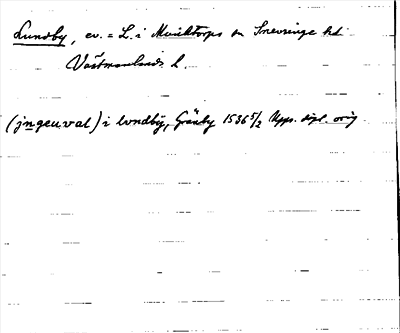 Lundby, ev. = L. i Munktorps sn Snevringe hd
Västmanlands l.
(jngeuval) i lvndby, Gränby 1536 5/2 Upps. dipl. orig